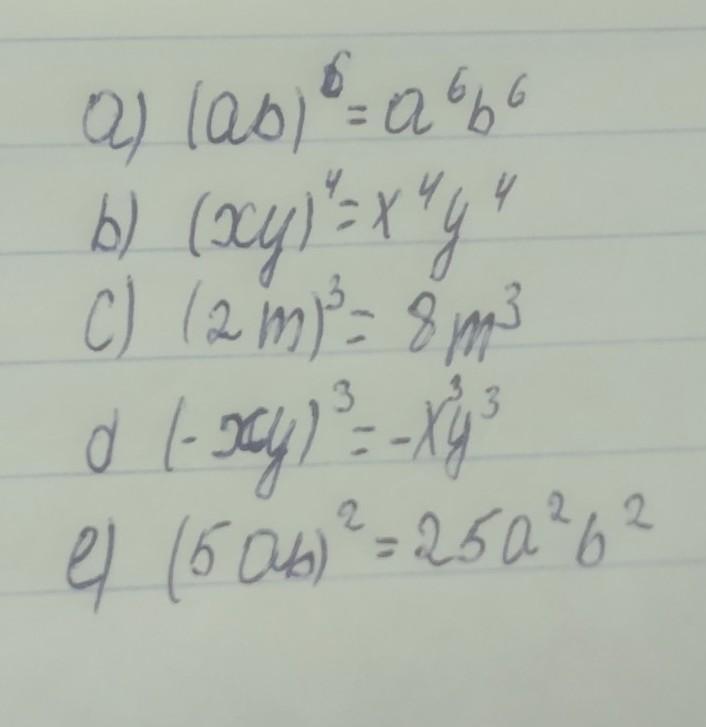 a) (ab)⁶ = a⁶b⁶
b) (xy)⁴ = x⁴y⁴
c) (2m)³ = 8m³
d (-xy)³ = -x³y³
e) (5ab)² = 25a²b²